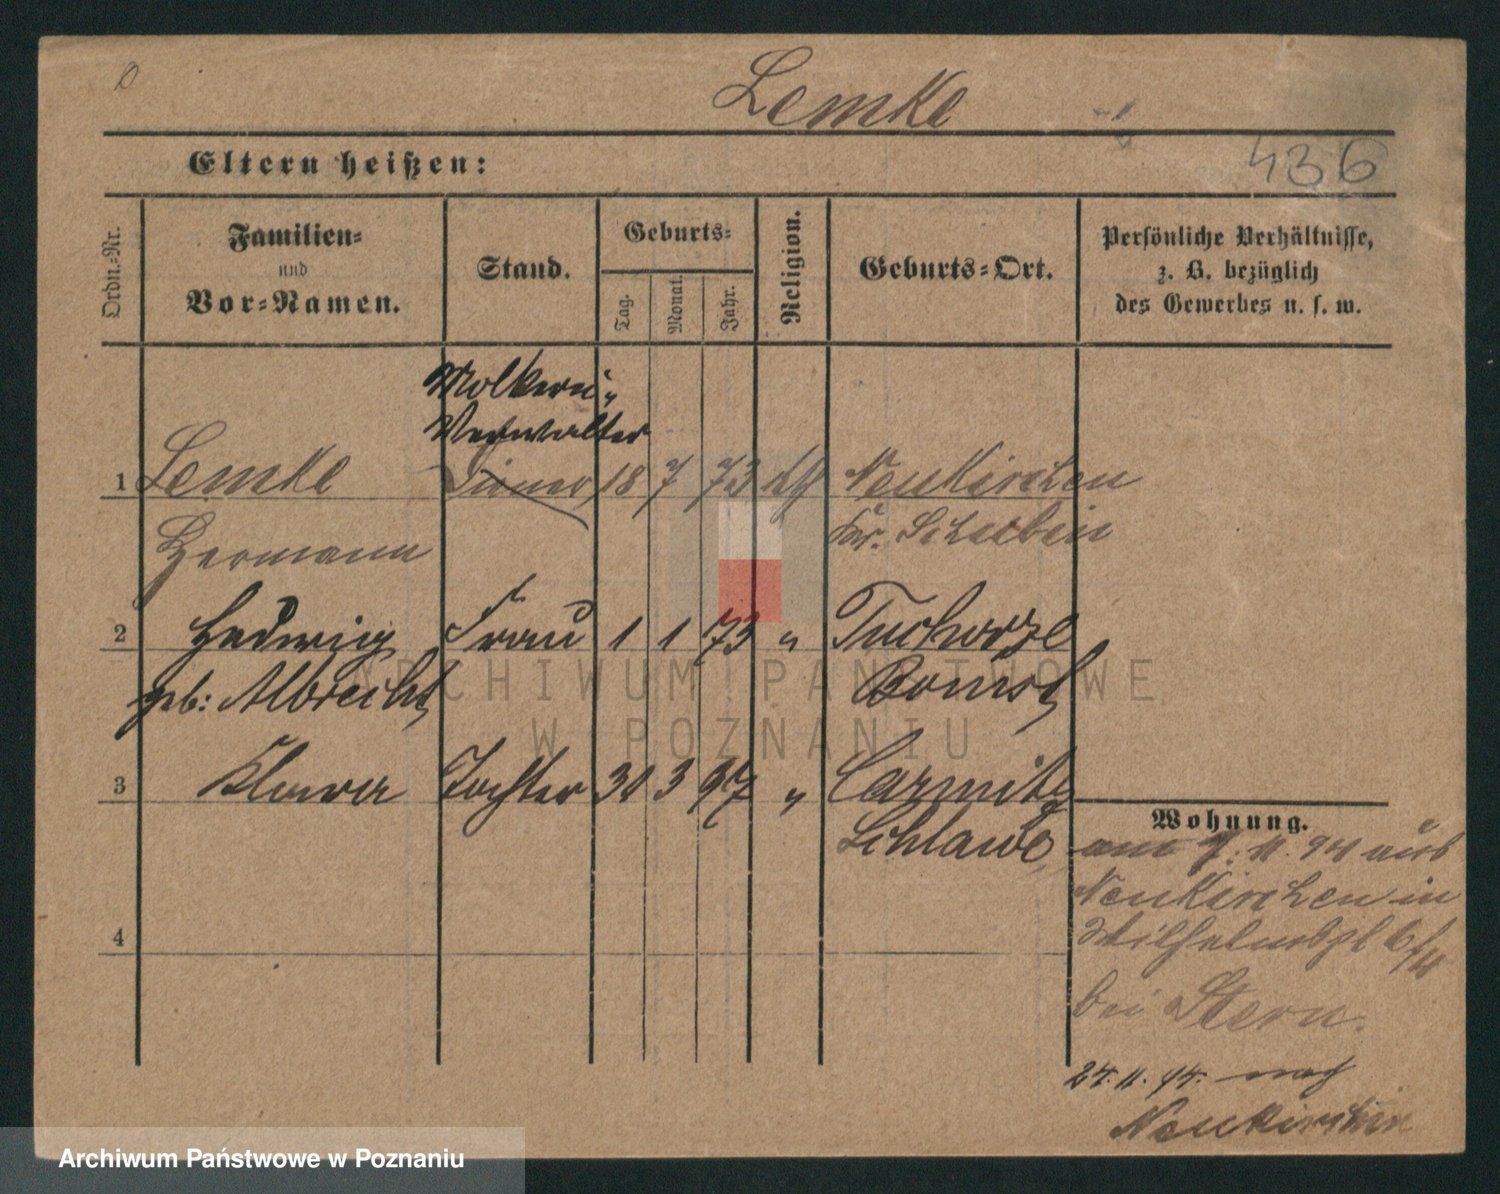 Lemke
436
Eltern heißen:
Ordn.-Nr.
Familien-
und
Vor-Namen.
Stand.
Geburts-
Tag.
Monat.
Jahr.
Religion.
Geburts-Ort.
Persönliche Verhältnisse,
z. B. bezüglich
des Gewerbes u. s. w.
Molkerei-
Verwalter
1 Lemke Diener 18 7 73 Neukirchen
Hermann Kr. Schubin
2 Hedwig Frau 1 1 73 " Tuchorze
geb: Albrecht Bomst
3 Klara Tochter 31 3 97 " Carmitz
Schlawe
4
Wohnung.
am 7. 11. 94 aus
Neukirchen in
Wilhelmspl
bei Stern.
24. 11. 94. nach
Neukirchen
ARCHIWUM PAŃSTWOWE
W POZNANIU
Archiwum Państwowe w Poznaniu